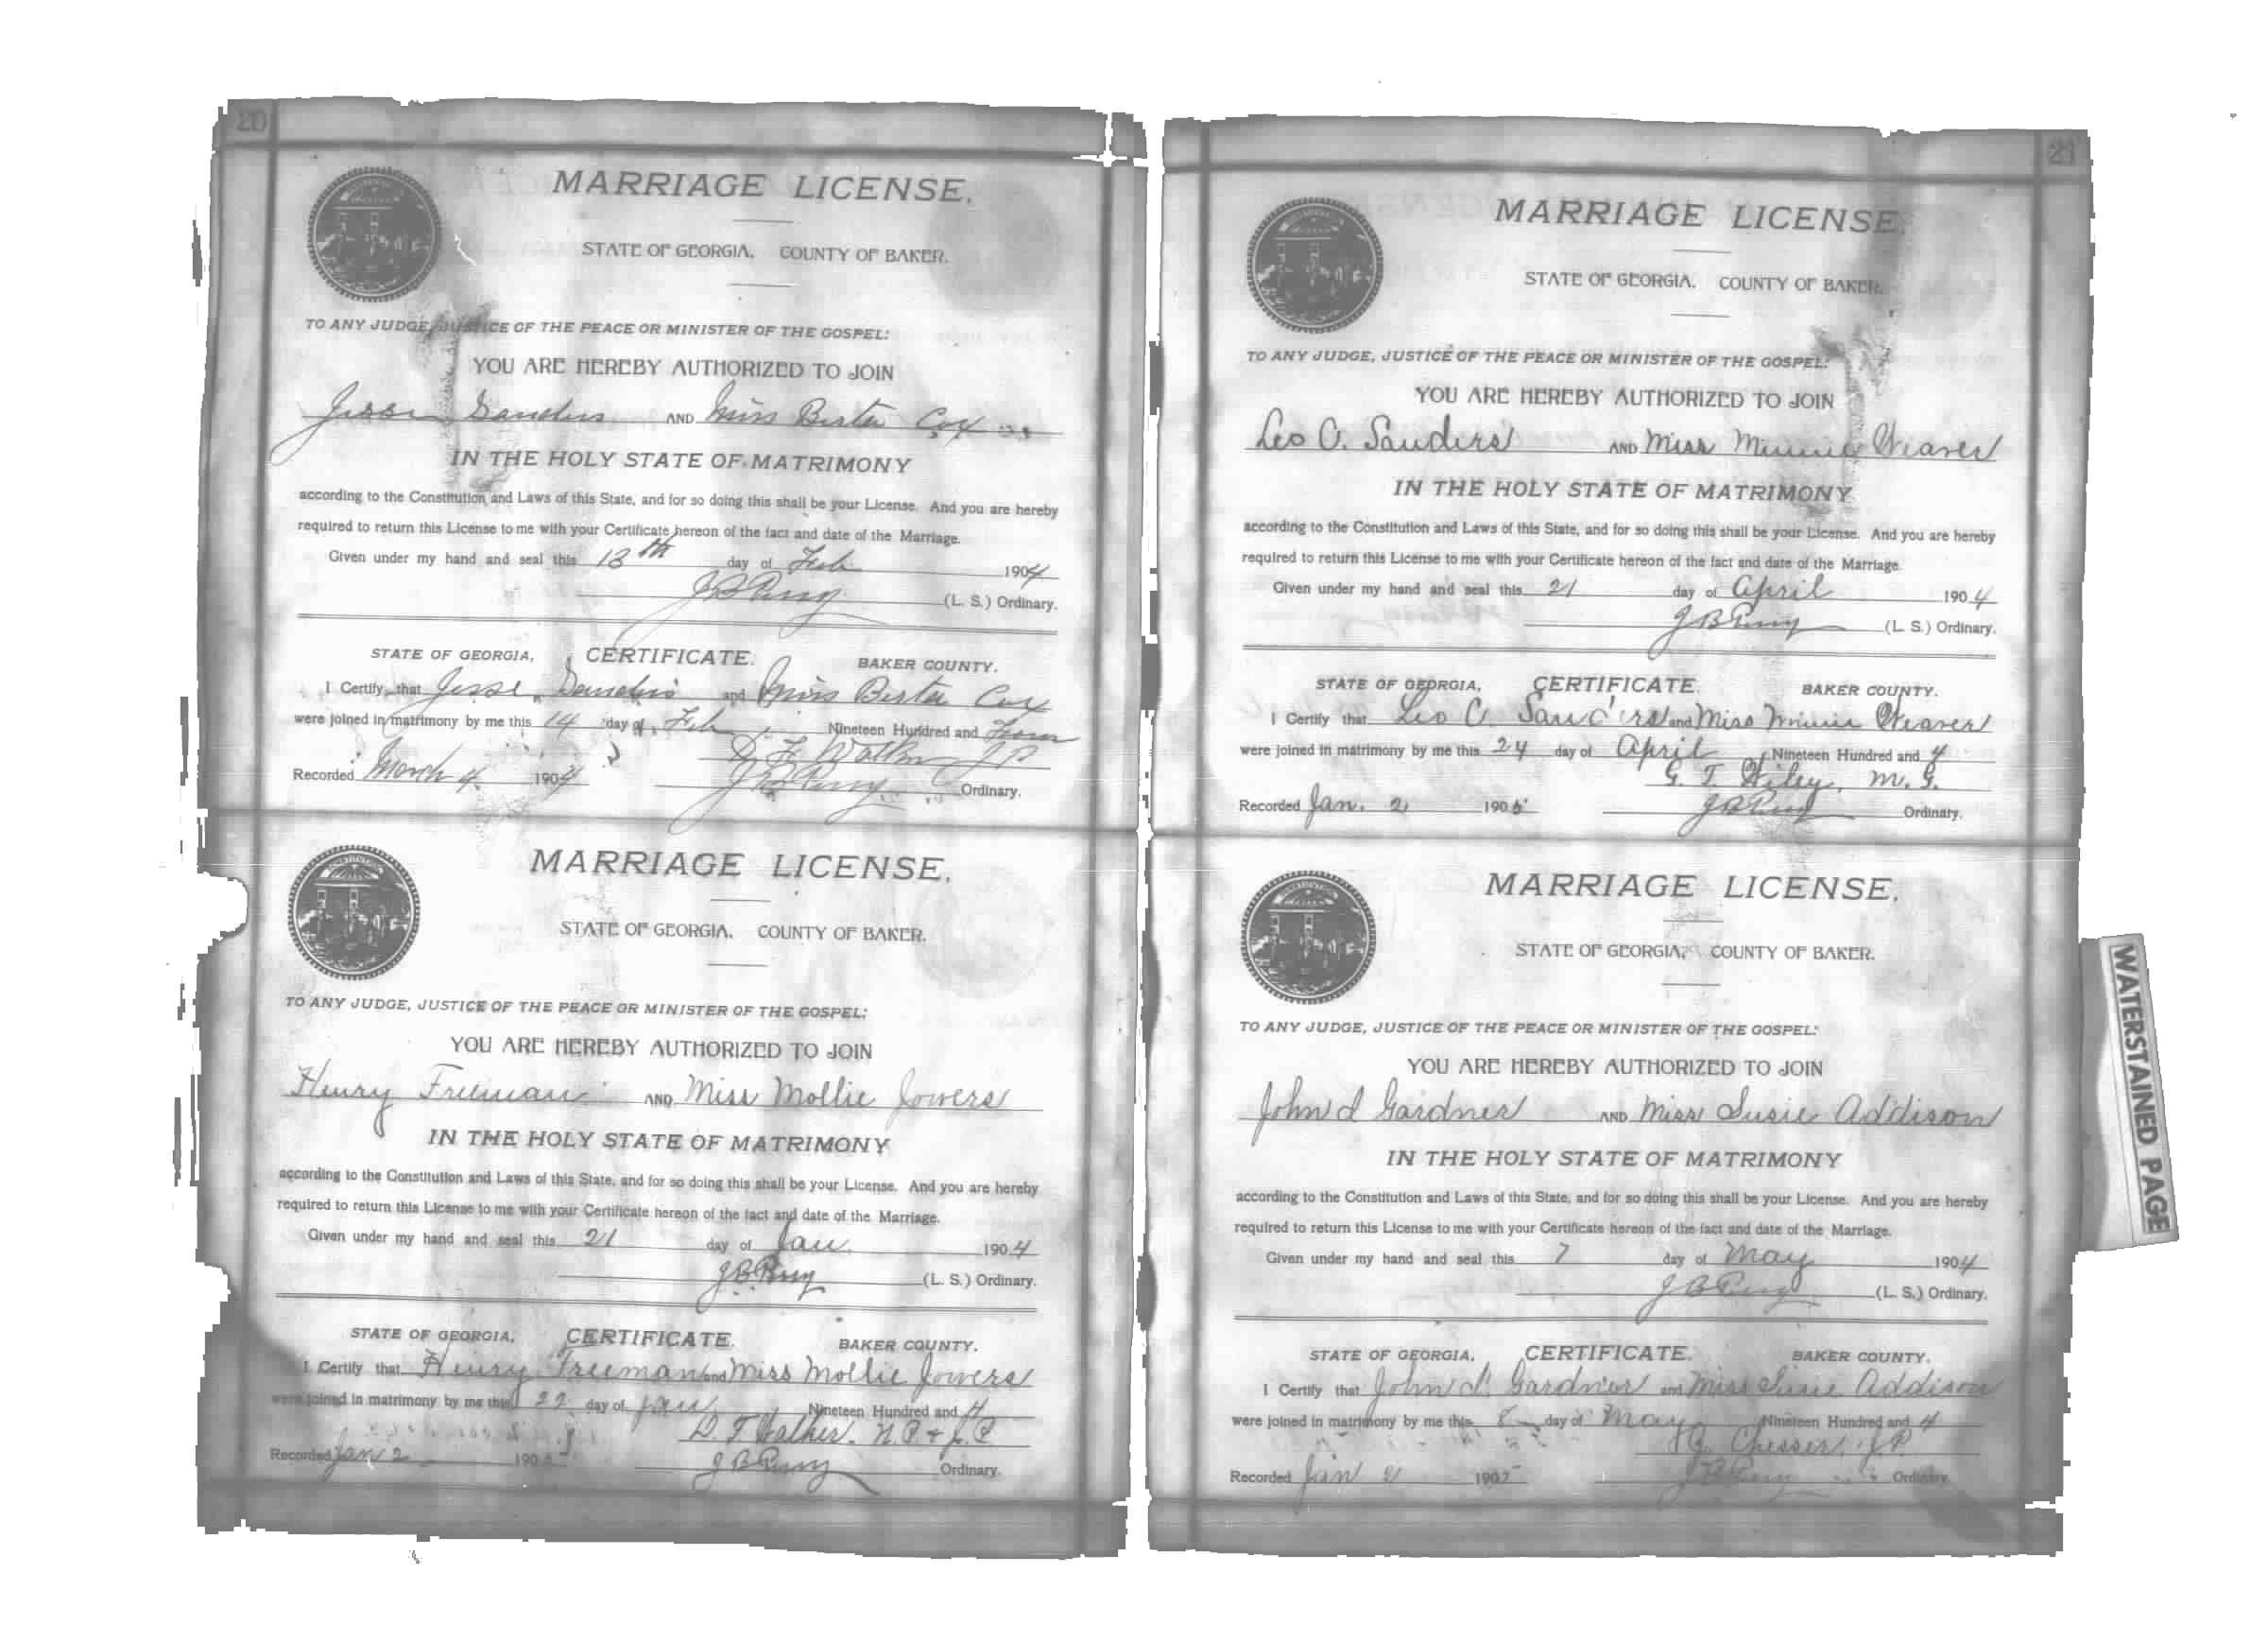 20
MARRIAGE LICENSE.
STATE OF GEORGIA. COUNTY OF BAKER.
TO ANY JUDGE, JUSTICE OF THE PEACE OR MINISTER OF THE GOSPEL:
YOU ARE HEREBY AUTHORIZED TO JOIN
Jesse Sanders AND Miss Berta Cox
IN THE HOLY STATE OF MATRIMONY
according to the Constitution and Laws of this State, and for so doing this shall be your License. And you are hereby
required to return this License to me with your Certificate hereon of the fact and date of the Marriage.
Given under my hand and seal this 13th day of Feb 1904
J B Perry (L. S.) Ordinary.
STATE OF GEORGIA. CERTIFICATE. BAKER COUNTY.
I Certify that Jesse Sanders and Miss Berta Cox
were joined in matrimony by me this 14 day of Feb Nineteen Hundred and Four
JP
Recorded March 4 1904 J B Perry Ordinary.
MARRIAGE LICENSE.
STATE OF GEORGIA. COUNTY OF BAKER.
TO ANY JUDGE, JUSTICE OF THE PEACE OR MINISTER OF THE GOSPEL:
YOU ARE HEREBY AUTHORIZED TO JOIN
Henry Freeman AND Miss Mollie Jowers
IN THE HOLY STATE OF MATRIMONY
according to the Constitution and Laws of this State, and for so doing this shall be your License. And you are hereby
required to return this License to me with your Certificate hereon of the fact and date of the Marriage.
Given under my hand and seal this 21 day of Jan. 1904
J B Perry (L. S.) Ordinary.
STATE OF GEORGIA. CERTIFICATE. BAKER COUNTY.
I Certify that Henry Freeman and Miss Mollie Jowers
were joined in matrimony by me this 22 day of Jan Nineteen Hundred and 4
D. F. N.P. & J.P.
Recorded Jan 2 1905 J B Perry Ordinary.
21
MARRIAGE LICENSE.
STATE OF GEORGIA. COUNTY OF BAKER.
TO ANY JUDGE, JUSTICE OF THE PEACE OR MINISTER OF THE GOSPEL:
YOU ARE HEREBY AUTHORIZED TO JOIN
Leo O. Sanders AND Miss Minnie Weaver
IN THE HOLY STATE OF MATRIMONY
according to the Constitution and Laws of this State, and for so doing this shall be your License. And you are hereby
required to return this License to me with your Certificate hereon of the fact and date of the Marriage.
Given under my hand and seal this 21 day of April 1904
J B Perry (L. S.) Ordinary.
STATE OF GEORGIA. CERTIFICATE. BAKER COUNTY.
I Certify that Leo O. Sanders and Miss Minnie Weaver
were joined in matrimony by me this 24 day of April Nineteen Hundred and 4
G. T. Wiley, M. G.
Recorded Jan. 2 1905 J B Perry Ordinary.
MARRIAGE LICENSE.
STATE OF GEORGIA. COUNTY OF BAKER.
TO ANY JUDGE, JUSTICE OF THE PEACE OR MINISTER OF THE GOSPEL:
YOU ARE HEREBY AUTHORIZED TO JOIN
John I Gardner AND Miss Susie Addison
IN THE HOLY STATE OF MATRIMONY
according to the Constitution and Laws of this State, and for so doing this shall be your License. And you are hereby
required to return this License to me with your Certificate hereon of the fact and date of the Marriage.
Given under my hand and seal this 7 day of May 1904
J B Perry (L. S.) Ordinary.
STATE OF GEORGIA. CERTIFICATE. BAKER COUNTY.
I Certify that John I. Gardner and Miss Susie Addison
were joined in matrimony by me this 8 day of May Nineteen Hundred and 4
Chesser J.P.
Recorded Jan 2 1905 J B Perry Ordinary.
WATERSTAINED PAGE